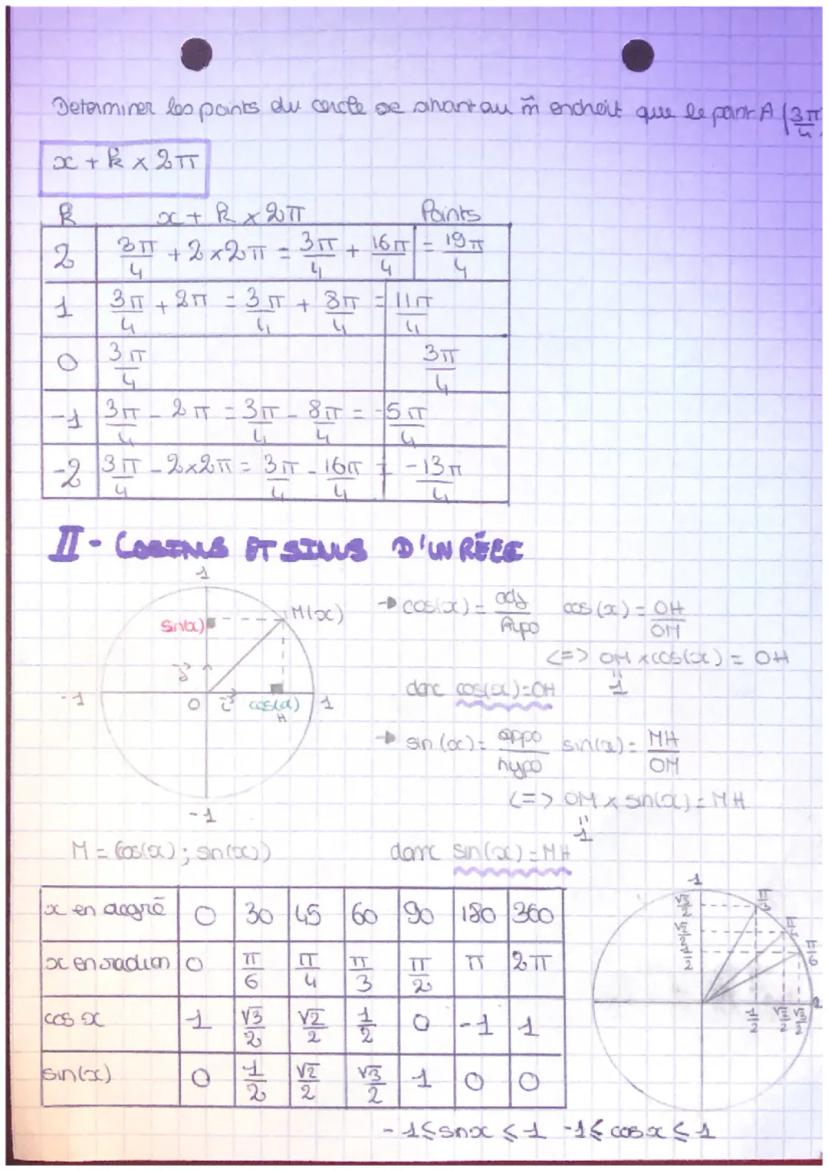 Determiner les points du cercle se situant au m̂ endroit que le point A (3π/4
x + k × 2π
k x + k × 2π Points
2 3π/4 + 2×2π = 3π/4 + 16π/4 = 19π/4
1 3π/4 + 2π = 3π/4 + 8π/4 = 11π/4
0 3π/4 3π/4
-1 3π/4 - 2π = 3π/4 - 8π/4 = -5π/4
-2 3π/4 - 2×2π = 3π/4 - 16π/4 = -13π/4
II - COSINUS ET SINUS D'UN RÉEL
1
sin(x) M(x)
-1 O cos(x) 1
H
-1
→ cos(x) = adj/hypo cos(x) = OH/OM
<=> OM × cos(x) = OH
donc cos(x) = OH 1
→ sin(x) = oppo/hypo sin(x) = MH/OM
<=> OM × sin(x) = MH
1
M = (cos(x) ; sin(x)) donc sin(x) = MH
x en degré 0 30 45 60 90 180 360
x en radian 0 π/6 π/4 π/3 π/2 π 2π
cos x 1 √3/2 √2/2 1/2 0 -1 1
sin(x) 0 1/2 √2/2 √3/2 1 0 0
1
√3/2 π/3
√2/2 π/4
1/2 π/6
1/2 √2/2 √3/2
-1 ≤ sin x ≤ 1 -1 ≤ cos x ≤ 1